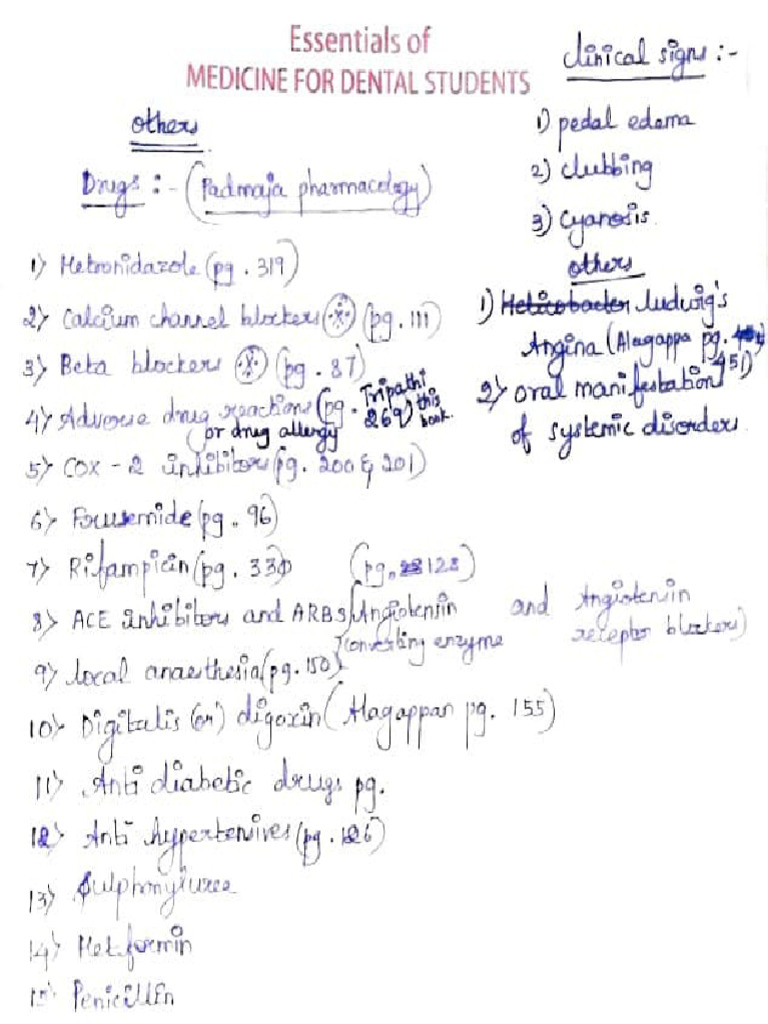 Essentials of
MEDICINE FOR DENTAL STUDENTS
Others
Drugs :- (Padmaja pharmacology)
1) Metronidazole (pg. 319)
2) Calcium channel blockers (pg. 111)
3) Beta blockers (pg. 87)
4) Adverse drug reactions (pg. 269) Tripathi this book.
or drug allergy
5) COX-2 inhibitors (pg. 200 & 201)
6) Fourusemide (pg. 96)
7) Rifampicin (pg. 330)
(pg. 128)
8) ACE inhibitors and ARBs (Angiotensin converting enzyme and Angiotensin receptor blockers)
9) Local anaesthesia (pg. 150)
10) Digitalis (or) digoxin (Alagappan pg. 155)
11) Anti diabetic drugs pg.
12) Anti hypertensives (pg. 126)
13) Sulphonylurea
14) Metformin
15) Penicillin
Clinical signs :-
1) pedal edema
2) clubbing
3) Cyanosis.
Others
1) Helicobacter Ludwig's
Angina (Alagappa pg. 451)
2) oral manifestation
of systemic disorders.